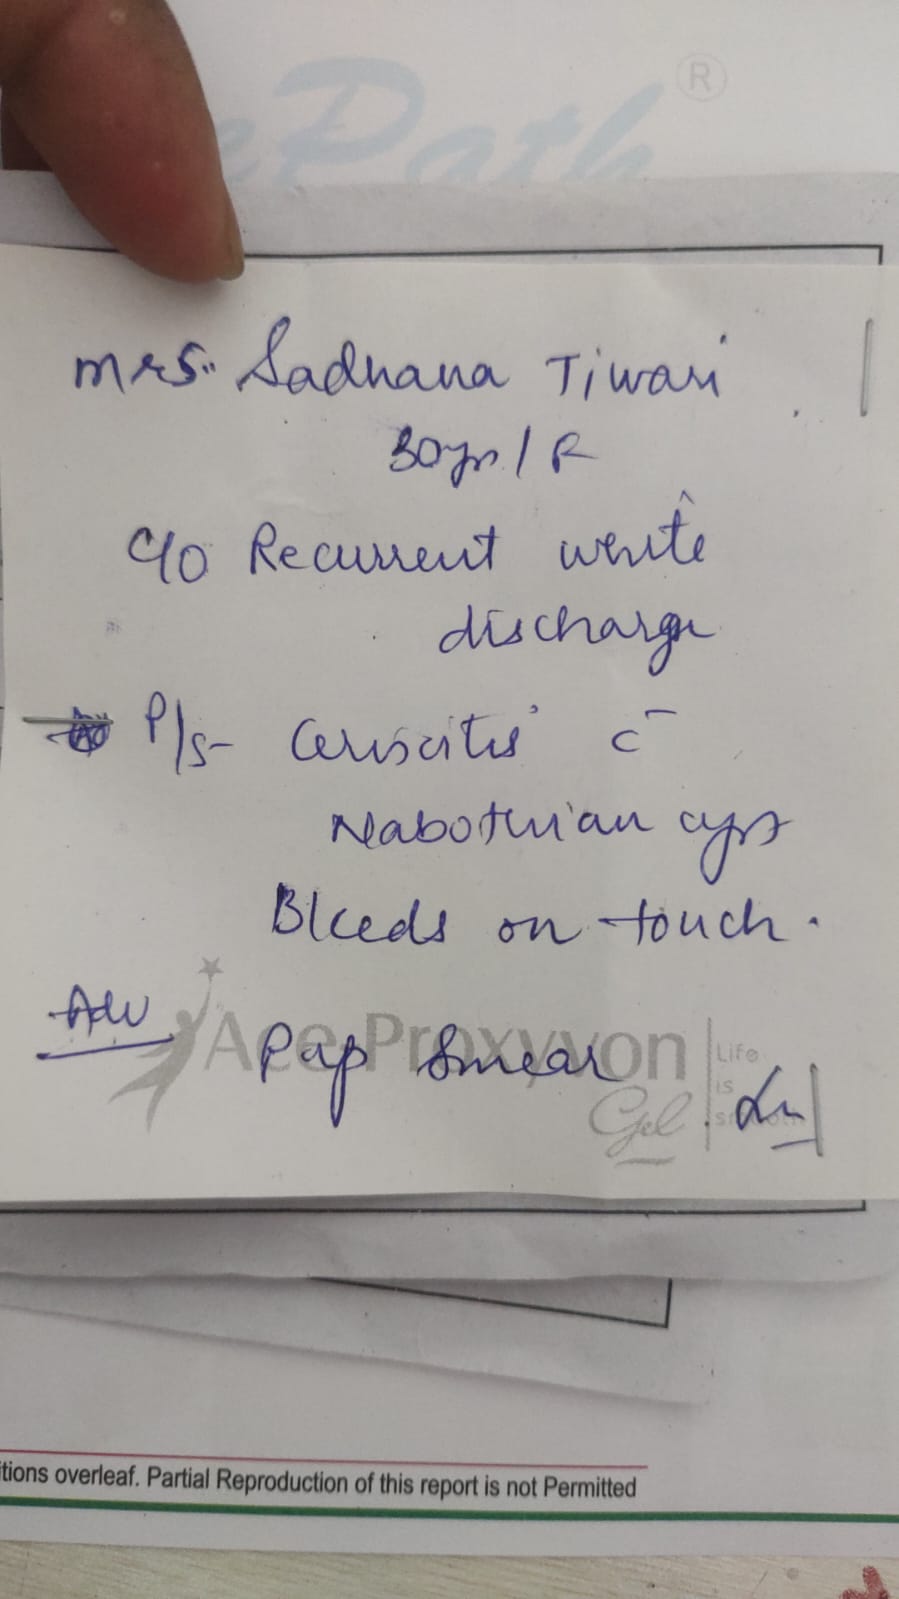 ePath ®
Mrs. Sadhana Tiwari
30yr / F
c/o Recurrent white
discharge
P/s- Cervicitis c̄
Nabothian cyst
Bleeds on touch.
Adv
Pap Smear
Ace-Proxyvon
Gel
Life
is
itions overleaf. Partial Reproduction of this report is not Permitted